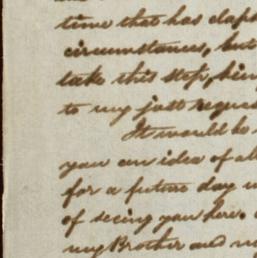 time that has elaps
circumstances, but
take this step, hin
to my just reques
It would be
you an idea of al
for a future day
of seeing you here.
my Brother and my